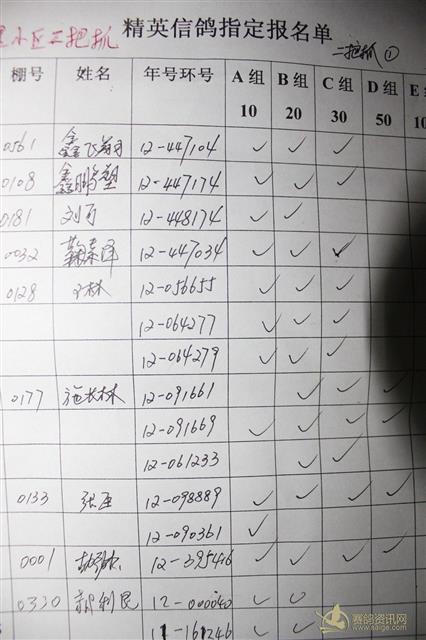 小区二把抓
精英信鸽指定报名单
二把抓 ①
棚号 姓名 年号环号 A组 B组 C组 D组 E组
10 20 30 50 10
0561 鑫飞翔 12-447104 ✓ ✓ ✓
0108 鑫鹏塑 12-447174 ✓ ✓ ✓
0181 刘 12-448174 ✓ ✓
0032 鞠泽 12-447034 ✓ ✓ ✓
0128 林 12-056655 ✓ ✓ ✓
12-064277 ✓ ✓ ✓
12-064279 ✓ ✓ ✓
0177 施长林 12-091661 ✓ ✓ ✓
12-091669 ✓ ✓ ✓ ✓
12-061233 ✓ ✓
0133 张 12-098889 ✓ ✓ ✓ ✓
12-090361 ✓
0001 12-395446 ✓ ✓ ✓ ✓
0330 郭利民 12-000040 ✓ ✓
11-161246
赛鸽资讯网
www.saige.com